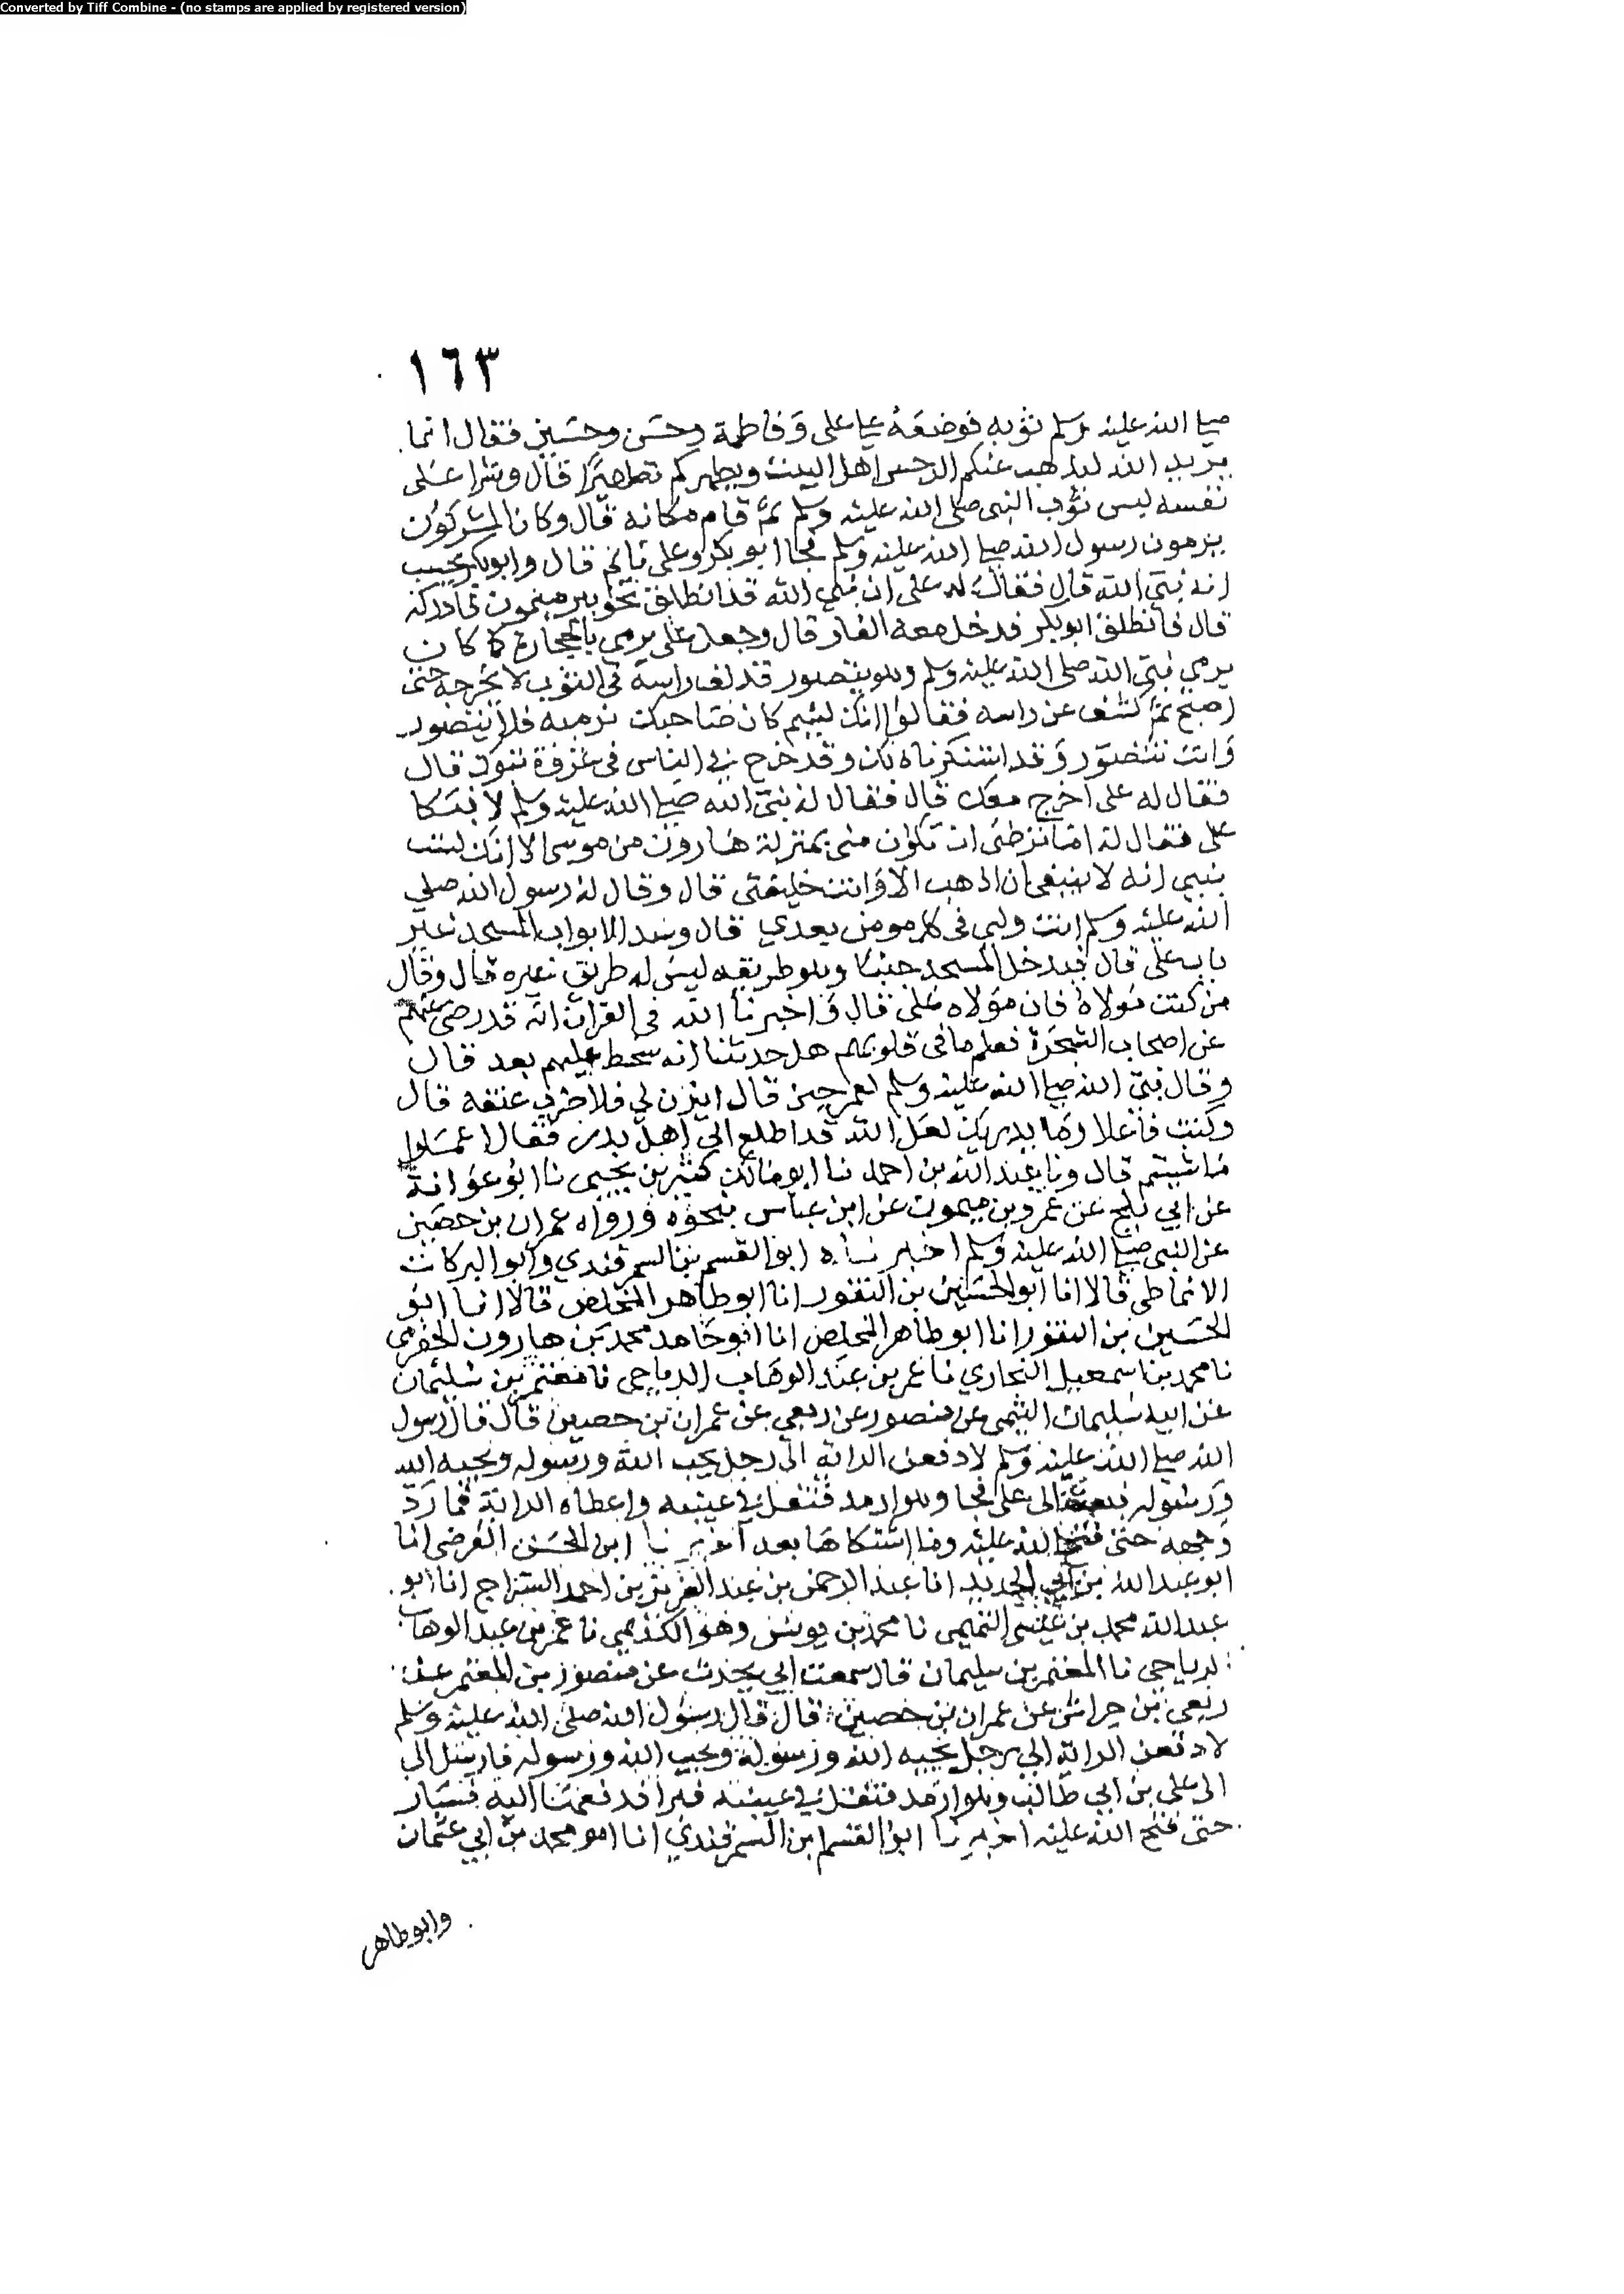 Converted by Tiff Combine - (no stamps are applied by registered version)
١٦٣
صلى الله عليه وسلم ثوبه فوضعه على على وفاطمة وحسن وحسين فقال انما
يريد الله ليذهب عنكم الرجس اهل البيت ويطهركم تطهيرا قال وشرا على
نفسه لبس ثوب النبى صلى الله عليه وسلم ثم قام مكانه قال وكان المشركون
يرمون رسول الله صلى الله عليه وسلم فجا ابو بكر وعلى نائم قال وابو بكر يحسب
انه نبي الله قال فقال له على ان نبي الله قد انطلق نحو بير ميمون فادركه
قال فانطلق ابو بكر فدخل معه الغار قال وجعل على يرمي بالحجارة كما كان
يرمي نبي الله صلى الله عليه وسلم وهو يتضور قد لف راسه في الثوب لا يخرجه حتى
اصبح ثم كشف عن راسه فقالوا انك لئيم كان صاحبك نرميه فلا يتضور
وانت تتضور وقد استنكرنا ذلك وقد خرج بالناس في غزوة تبوك قال
فقال له على اخرج معك قال فقال له نبي الله صلى الله عليه وسلم لا فبكا
على فقال له اما ترضى ان تكون منى بمنزلة هارون من موسى الا انك لست
بنبي انه لا ينبغي ان اذهب الا وانت خليفتى قال وقال له رسول الله صلى
الله عليه وسلم انت وليي في كل مومن بعدي قال وسد الابواب المسجد غير
باب على قال فيدخل المسجد جنبا وهو طريقه ليس له طريق غيره قال وقال
من كنت مولاه فان مولاه على قال واخبرنا الله في القرآن انه قد رضي عنهم
عن اصحاب الشجرة فعلم ما في قلوبهم هل حدثنا انه سخط عليهم بعد قال
وقال نبي الله صلى الله عليه وسلم لعمر حين قال ايذن لي فلاضرب عنقه قال
وكنت فاعلا وما يدريك لعل الله قد اطلع الى اهل بدر فقال اعملوا
ما شيتم قال ونا عبد الله بن احمد نا ابو مالك كثير بن يحيى نا ابو عوانة
عن ابي بلج عن عمرو بن ميمون عن ابن عباس بنحوه ورواه عمران بن حصين
عن النبي صلى الله عليه وسلم اخبرناه ابو القسم بن السمرقندي وابو البركات
الانماطى قالا انا ابو الحسين بن النقور انا ابو طاهر المخلص قالا انا ابو
الحسين بن النقور انا ابو طاهر المخلص انا ابو حامد محمد بن هارون الحضرمى
نا محمد بن اسمعيل البخاري نا عمر بن عبد الوهاب الرياحى نا معتمر بن سليمان
عن ابيه سليمان التيمى عن منصور عن ربعي عن عمران بن حصين قال قال رسول
الله صلى الله عليه وسلم لادفعن الراية الى رجل يحب الله ورسوله ويحبه الله
ورسوله فبعث الى على فجا وهو ارمد فتفل في عينيه واعطاه الراية فما رد
وجهه حتى فتح الله عليه وما اشتكاها بعد اخبرنا ابو الحسن الفرضى انا
ابو عبد الله بن ابي الحديد انا عبد الرحمن بن عبد العزيز بن احمد السراج انا ابو
عبد الله محمد بن عيسى التميمى نا محمد بن يونس وهو الكديمي نا عمر بن عبد الوهاب
الرياحي نا المعتمر بن سليمان قال سمعت ابي يحدث عن منصور بن المعتمر عن
ربعي بن حراش عن عمران بن حصين قال قال رسول الله صلى الله عليه وسلم
لادفعن الراية الى رجل يحبه الله ورسوله ويحب الله ورسوله فارسل الى
الى على بن ابي طالب وهو ارمد فتفل في عينيه فبرا فدفعها اليه فسار
حتى فتح الله عليه اخبرنا ابو القسم ابن السمرقندي انا ابو محمد بن ابي عثمان
وابو طاهر